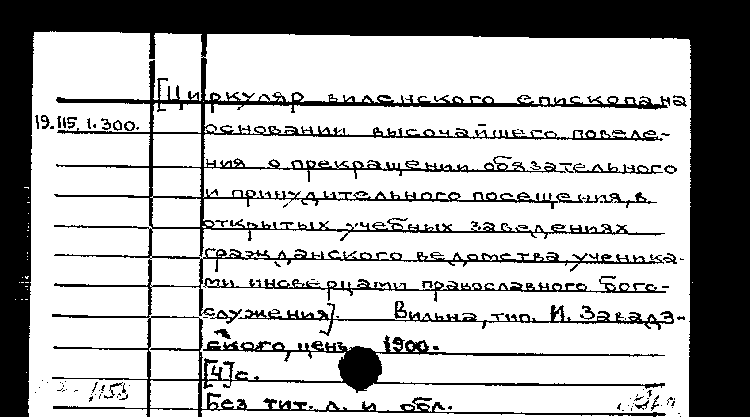 [Циркуляр виленского епископа на
19.115.1.300. основании высочайшего повеле-
ния о прекращении обязательного
и принудительного посещения, в
открытых учебных заведениях
гражданского ведомства, ученика-
ми иноверцами православного бого-
служения]. Вильна, тип. И. Завадз-
ского, ценз. 1900.
[4] с.
Без тит. л. и обл.